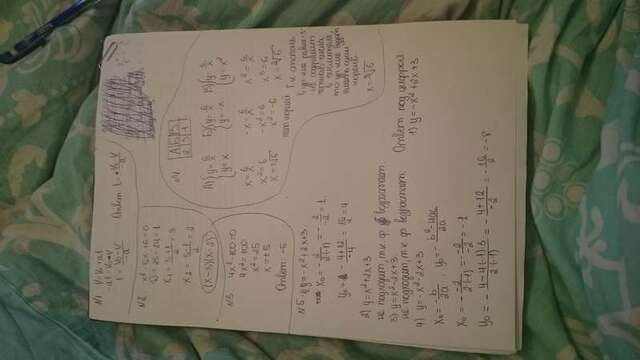 N1. V = V₀ + at
-at = V₀ - V
t = (V₀ - V)/(-a)
Ответ t = (V₀ - V)/(-a)
N2.
x² - 5x + 6 = 0
D = 25 - 24 = 1
x₁ = (5+1)/2 = 3
x₂ = (5-1)/2 = 2
(x-3)(x-2)
N3.
4x² - 100 = 0
4x² = 100
x² = 25
x = ±5
Ответ: -5
N4.
А Б В
2 3 1
А) { y = 6/x
y = x
x = 6/x
x² = 6
x = ±√6
Б) { y = 6/x
y = -x
-x = 6/x
-x² = 6
x² = -6
нет корней
В) { y = 6/x
y = x²
x² = 6/x
x³ = 6
x = ∛6
Т.к степень
x = ∛6
N5. 1) y = -x² + 2x + 3
x₀ = -2/(2·(-1)) = -2/-2 = 1
y₀ = -(4+12)/-4 = 16/4 = 4
2) y = x² + 2x + 3
не подходит, т.к ф возрастает
3) y = x² - 2x + 3
не подходит, т.к. ф возрастает.
4) y = -x² - 2x + 3
x₀ = -b/2a, y₀ = -(b² - 4ac)/2a
x₀ = -(-2)/(2·(-1)) = -2/2 = -1
y₀ = -(4 - 4·(-1)·3)/(2·(-1)) = -(4+12)/-2 = -16/2 = -8
Ответ под цифрой
1) y = -x² + 2x + 3